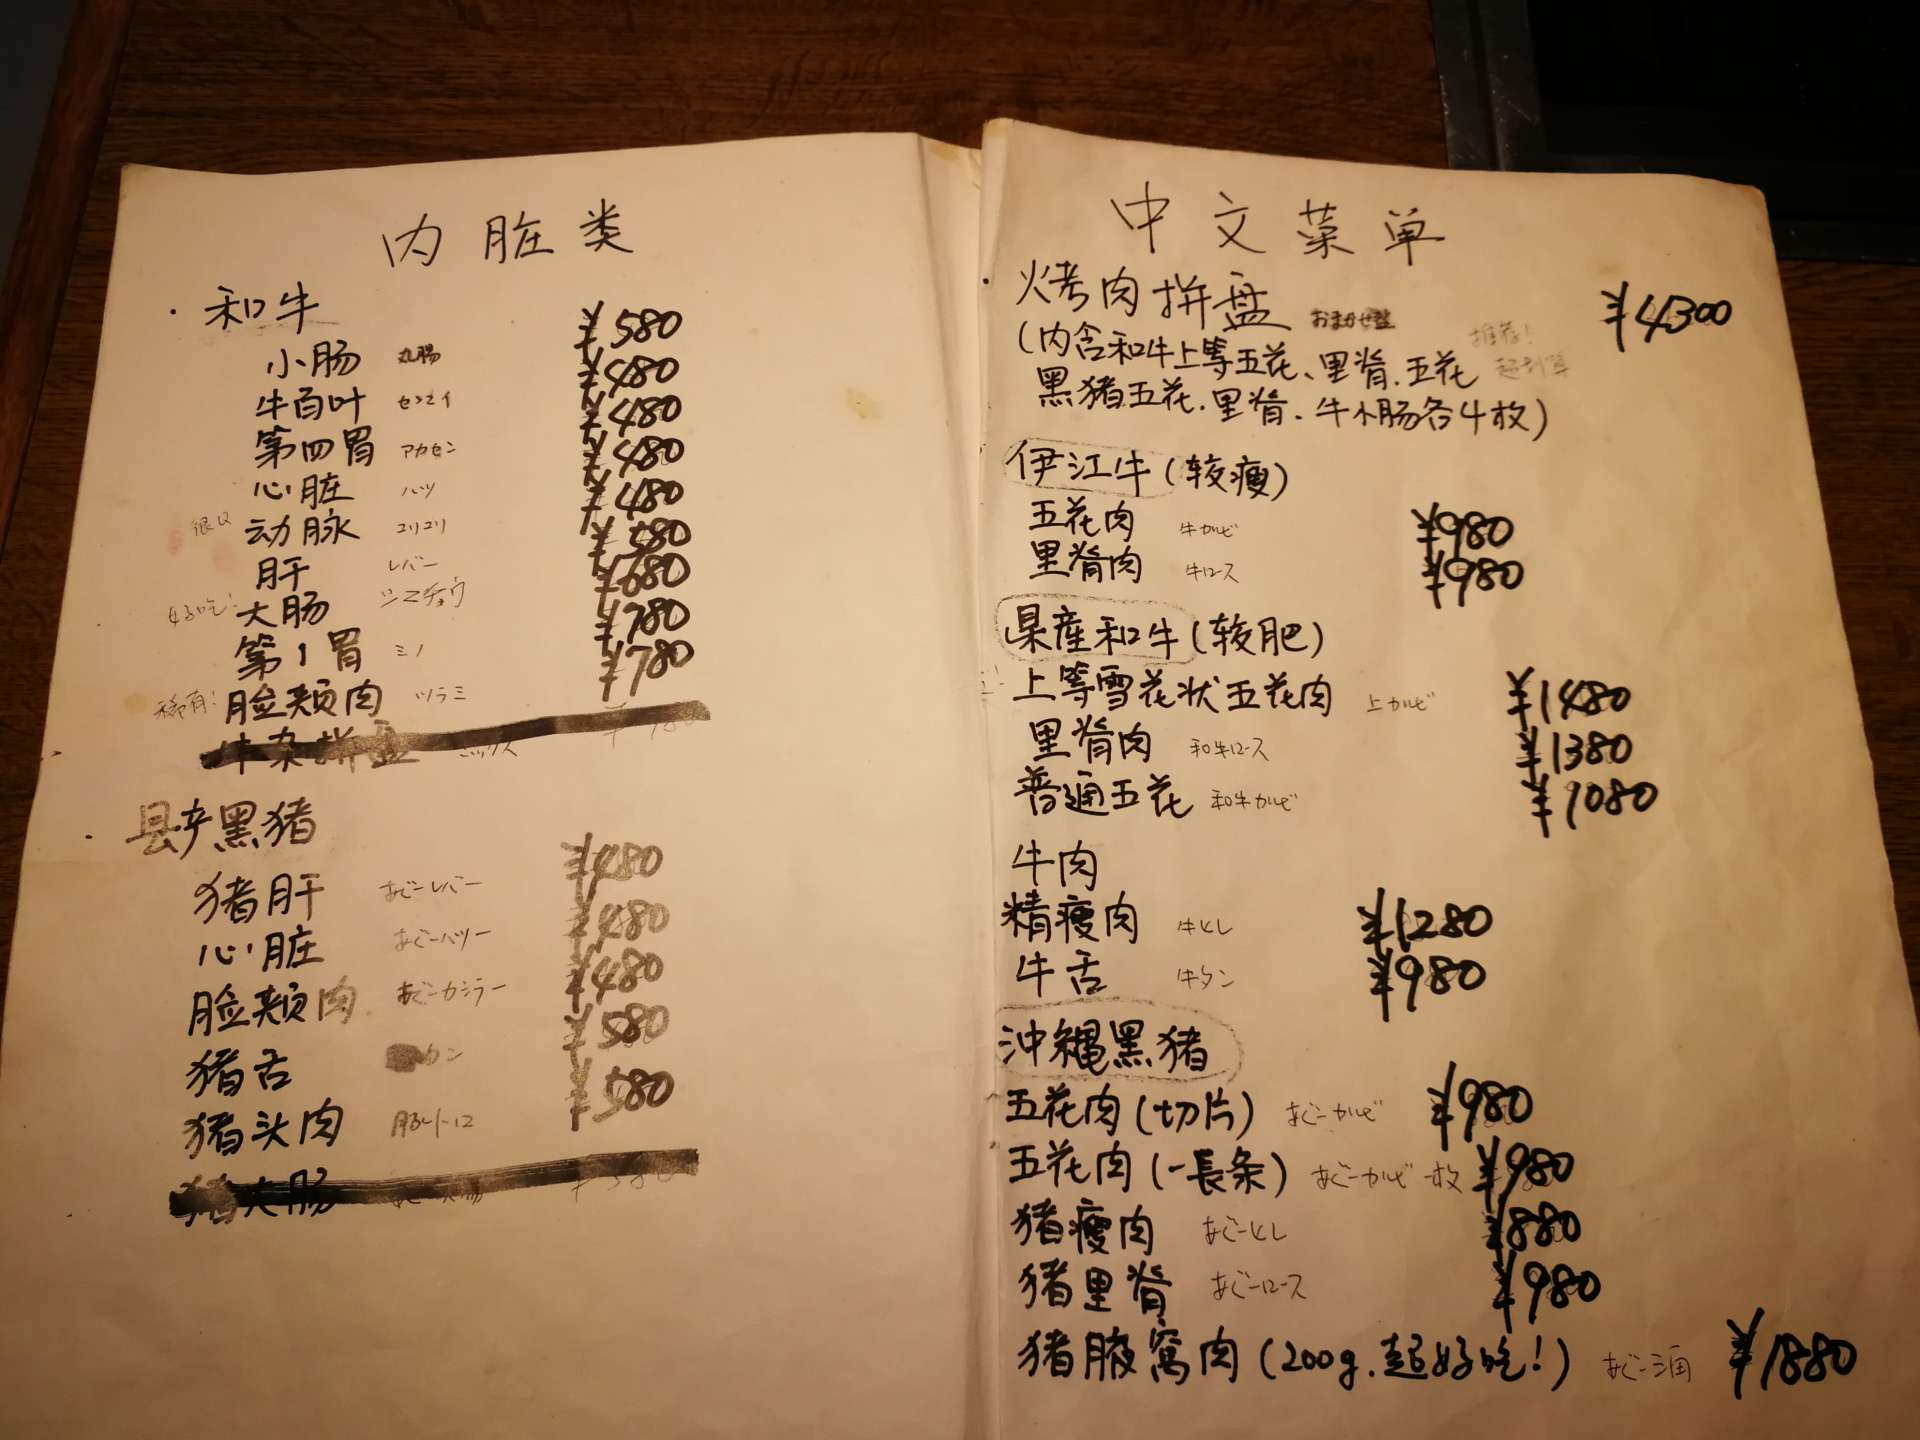 内脏类
·和牛
小肠 丸腸 ¥580
牛百叶 センマイ ¥480
第四胃 アカセン ¥480
心脏 ハツ ¥480
动脉 コリコリ ¥480
肝 レバー ¥580
好吃: 大肠 シマチョウ ¥680
第1胃 ミノ ¥780
稀有: 脸颊肉 ツラミ ¥780
牛杂拼盘 ミックス
·县产黑猪
猪肝 あぐーレバー ¥480
心脏 あぐーハツ ¥480
脸颊肉 あぐーカシラー ¥480
猪舌 ¥580
猪头肉 豚トロ ¥580
猪大肠
中文菜单
·烤肉拼盘 おまかせ盛 ¥4300
(内含和牛上等五花、里脊.五花 推荐! 超划算
黑猪五花.里脊.牛小肠各4枚)
伊江牛(较瘦)
五花肉 牛カルビ ¥980
里脊肉 牛ロース ¥980
県産和牛(较肥)
上等雪花状五花肉 上カルビ ¥1480
里脊肉 和牛ロース ¥1380
普通五花 和牛カルビ ¥1080
牛肉
精瘦肉 牛ヒレ ¥1280
牛舌 牛タン ¥980
沖縄黑猪
五花肉(切片) あぐーカルビ ¥980
五花肉(一長条) あぐーカルビ一枚 ¥980
猪瘦肉 あぐーヒレ ¥880
猪里脊 あぐーロース ¥980
猪腋窝肉(200g.超好吃!) ¥1880